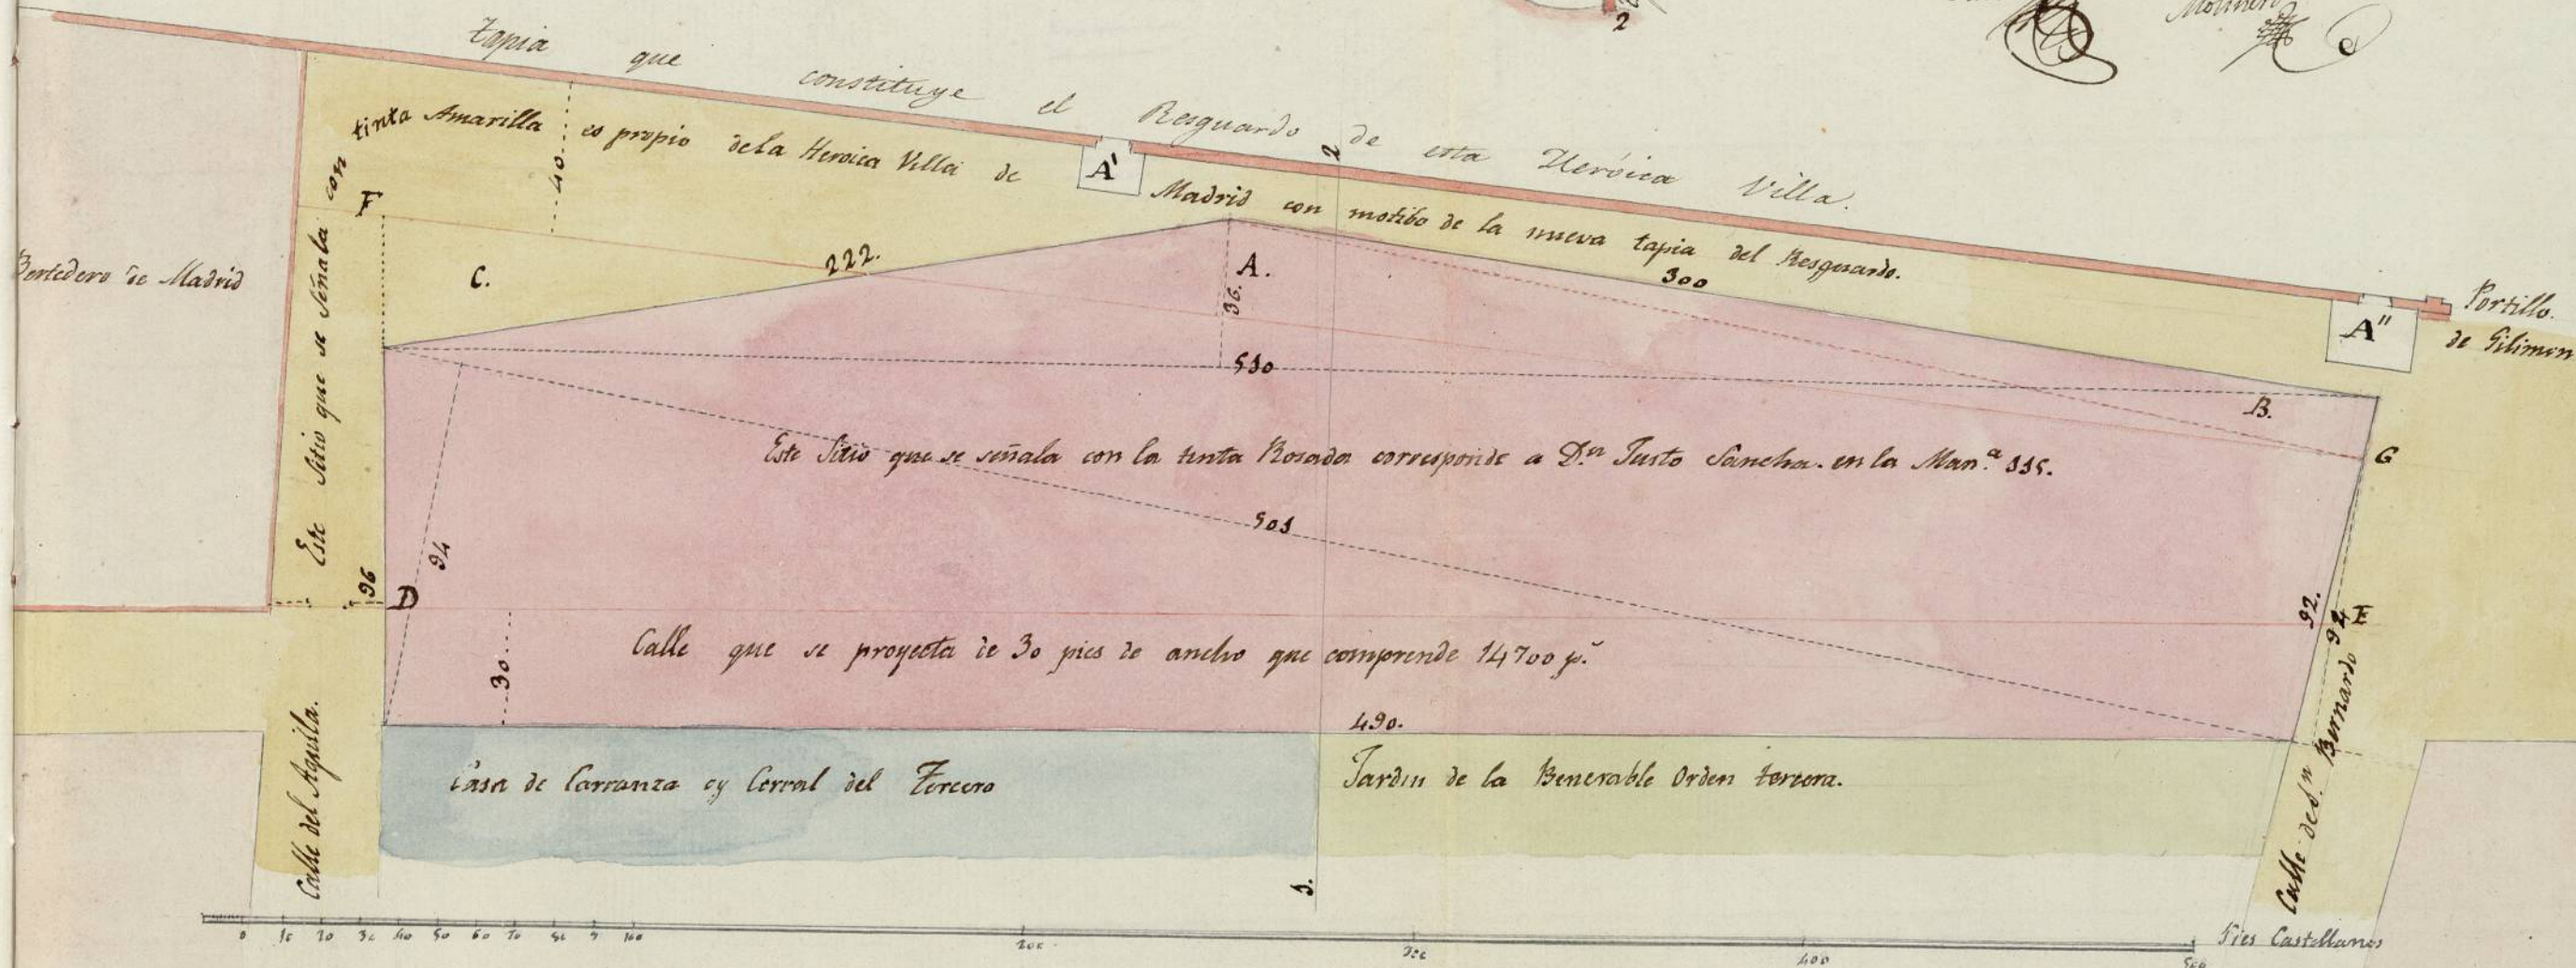 2
Molinero
Tapia que constituye el Resguardo de esta Heróica Villa.
Este Sitio que se señala con tinta Amarilla es propio dela Heroica Villa de Madrid con motibo de la nueva tapia del Resguardo.
40
A'
2
F
C.
222.
A.
36.
300
Portillo.
de Gilimon
A"
Bertedero de Madrid
510
B.
G
Este Sitio que se señala con la tinta Rosada corresponde a D.n Justo Sancha. en la Man.a 115.
501
94
96
D
92.
92
E
Calle que se proyecta de 30 pies de ancho que comprende 14700 p.s
30
490.
Calle del Aguila.
Casa de Carranza oy Corral del Tercero
Jardin de la Benerable Orden tercera.
Calle de S.n Bernardo
1.
0 10 20 30 40 50 60 70 80 9 100 200 300 400 500
Pies Castellanos